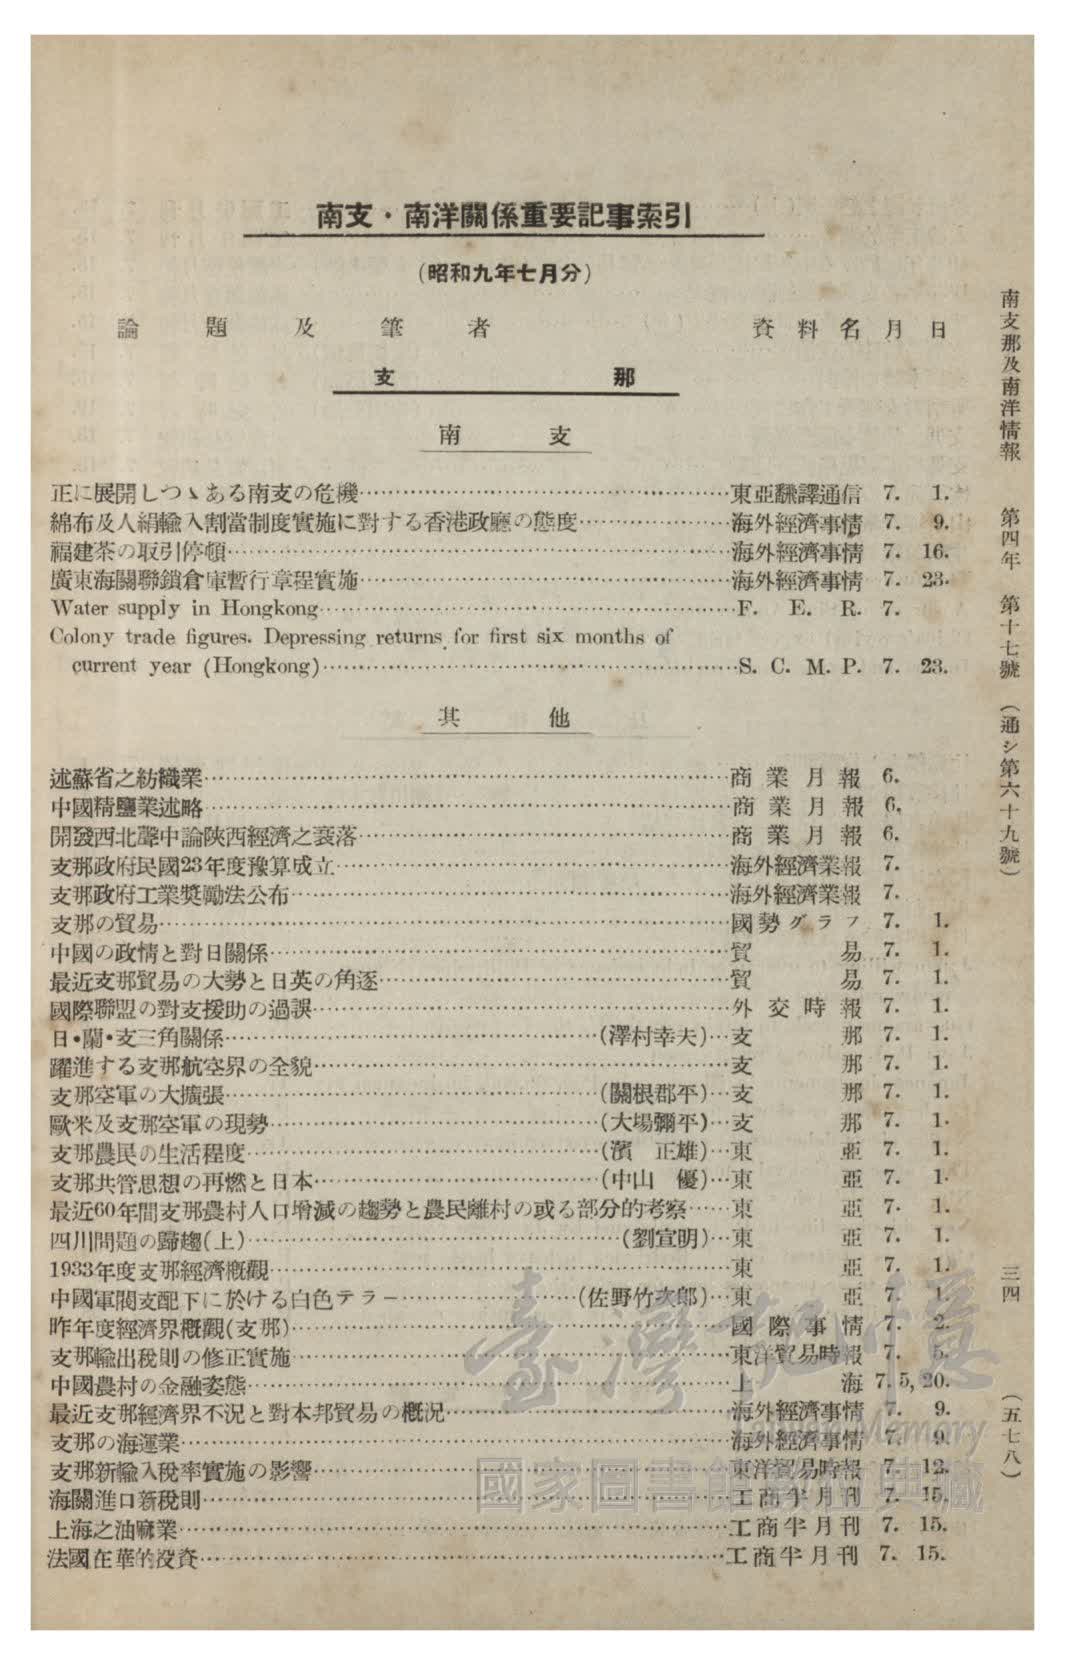 南支・南洋關係重要記事索引
(昭和九年七月分)
論題及筆者 資料名 月 日
支那
南支
正に展開しつゝある南支の危機……東亞飜譯通信 7. 1.
綿布及人絹輸入割當制度實施に對する香港政廳の態度……海外經濟事情 7. 9.
福建茶の取引停頓……海外經濟事情 7. 16.
廣東海關聯鎖倉庫暫行章程實施……海外經濟事情 7. 23.
Water supply in Hongkong……F. E. R. 7.
Colony trade figures. Depressing returns for first six months of
current year (Hongkong)……S. C. M. P. 7. 23.
其他
述蘇省之紡織業……商業月報 6.
中國精鹽業述略……商業月報 6.
開發西北聲中論陝西經濟之衰落……商業月報 6.
支那政府民國23年度豫算成立……海外經濟業報 7.
支那政府工業奬勵法公布……海外經濟業報 7.
支那の貿易……國勢グラフ 7. 1.
中國の政情と對日關係……貿易 7. 1.
最近支那貿易の大勢と日英の角逐……貿易 7. 1.
國際聯盟の對支援助の過誤……外交時報 7. 1.
日・蘭・支三角關係……(澤村幸夫)…支那 7. 1.
躍進する支那航空界の全貌……支那 7. 1.
支那空軍の大擴張……(關根郡平)…支那 7. 1.
歐米及支那空軍の現勢……(大場彌平)…支那 7. 1.
支那農民の生活程度……(濱 正雄)…東亞 7. 1.
支那共管思想の再燃と日本……(中山 優)…東亞 7. 1.
最近60年間支那農村人口增減の趨勢と農民離村の或る部分的考察……東亞 7. 1.
四川問題の歸趨(上)……(劉宣明)…東亞 7. 1.
1933年度支那經濟槪觀……東亞 7. 1.
中國軍閥支配下に於ける白色テラー……(佐野竹次郎)…東亞 7. 1.
昨年度經濟界槪觀(支那)……國際事情 7. 2.
支那輸出稅則の修正實施……東洋貿易時報 7. 5.
中國農村の金融姿態……上海 7.5, 20.
最近支那經濟界不況と對本邦貿易の槪況……海外經濟事情 7. 9.
支那の海運業……海外經濟事情 7. 9.
支那新輸入稅率實施の影響……東洋貿易時報 7. 12.
海關進口新稅則……工商半月刊 7. 15.
上海之油麻業……工商半月刊 7. 15.
法國在華的投資……工商半月刊 7. 15.
南支那及南洋情報 第四年 第十七號 (通シ第六十九號) 三四 (五七八)
臺灣記憶
Taiwan Memory
國家圖書館數位典藏